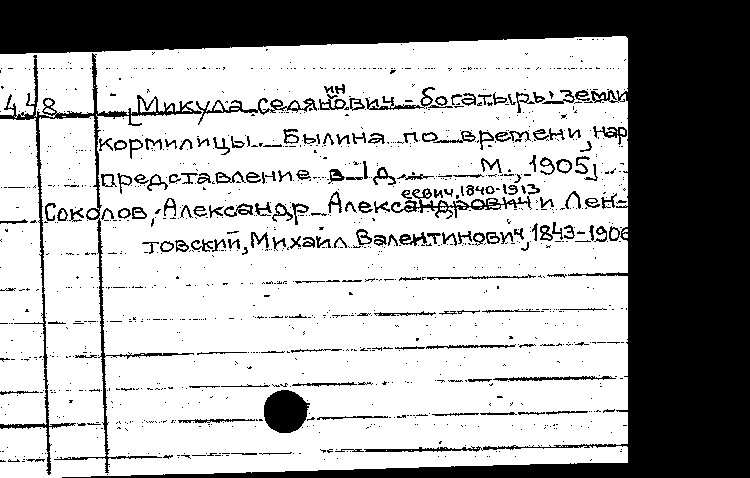 448 [Микула Селянинович - богатырь земли
кормилицы. Былина по времени, нар
представление в 1 д. ... М., 1905]
Соколов, Александр Алексеевич, 1840-1913 и Лен-
товский, Михаил Валентинович, 1843-1906